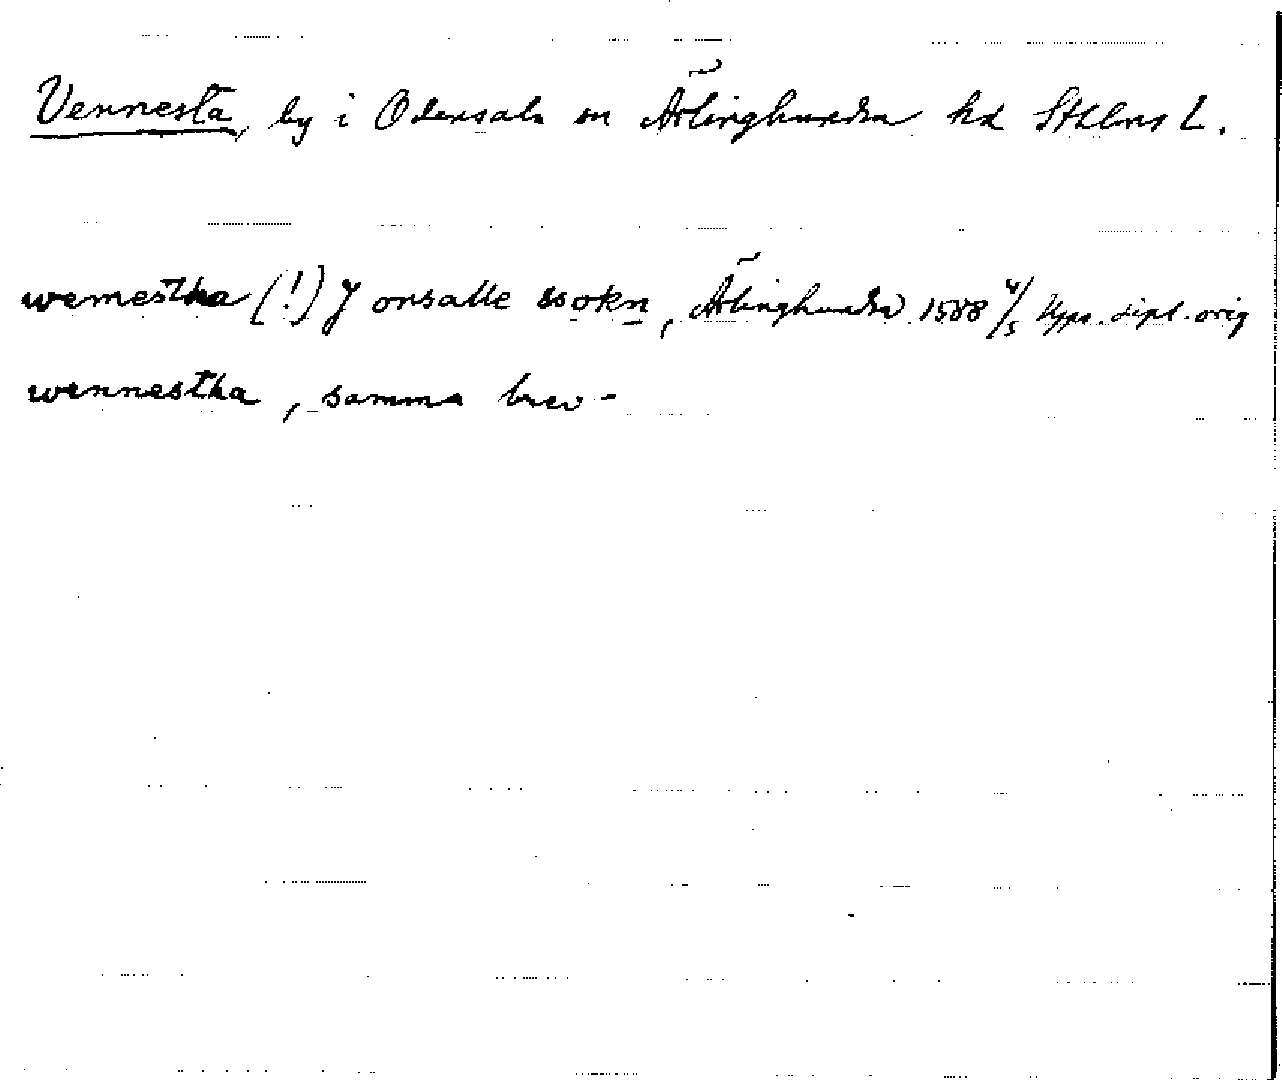 Vennesta, by i Odensala sn Ärlinghundra hd Sthlms L.
wemestha (!) J onsalle ssokn, Ärlinghundra 1588 4/5 Upps. dipl. orig
wennestha, samma brev -